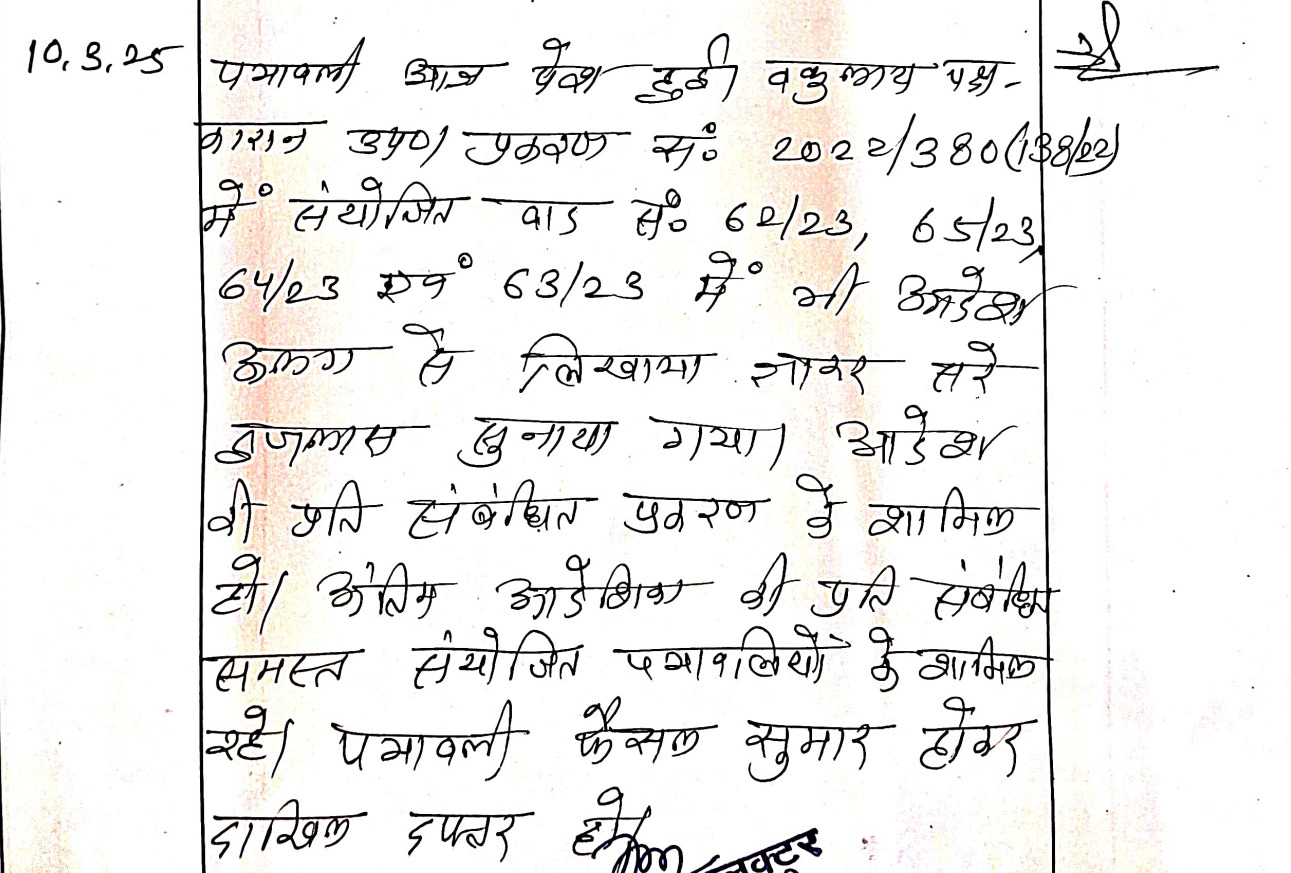 10.3.25 पत्रावली आज पेश हुई। वकुलाय पक्ष-
कारान उप०। प्रकरण सं० 2022/380(138/22)
में संयोजित वाद सं० 62/23, 65/23,
64/23 एवं 63/23 में भी आदेश
अलग से लिखाया जाकर सरे
इजलास सुनाया गया। आदेश
की प्रति संबंधित प्रकरण के शामिल
हो। अंतिम आदेशिका की प्रति संबंधित
समस्त संयोजित पत्रावलियों के शामिल
रहे। पत्रावली फैसल सुमार होकर
दाखिल दफ्तर हो।